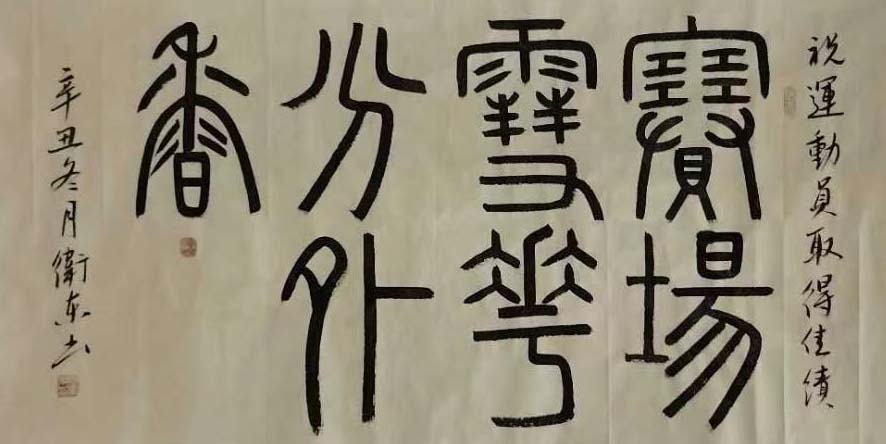 祝運動員取得佳績
賽場
雪花
分外
香
辛丑冬月衛東书